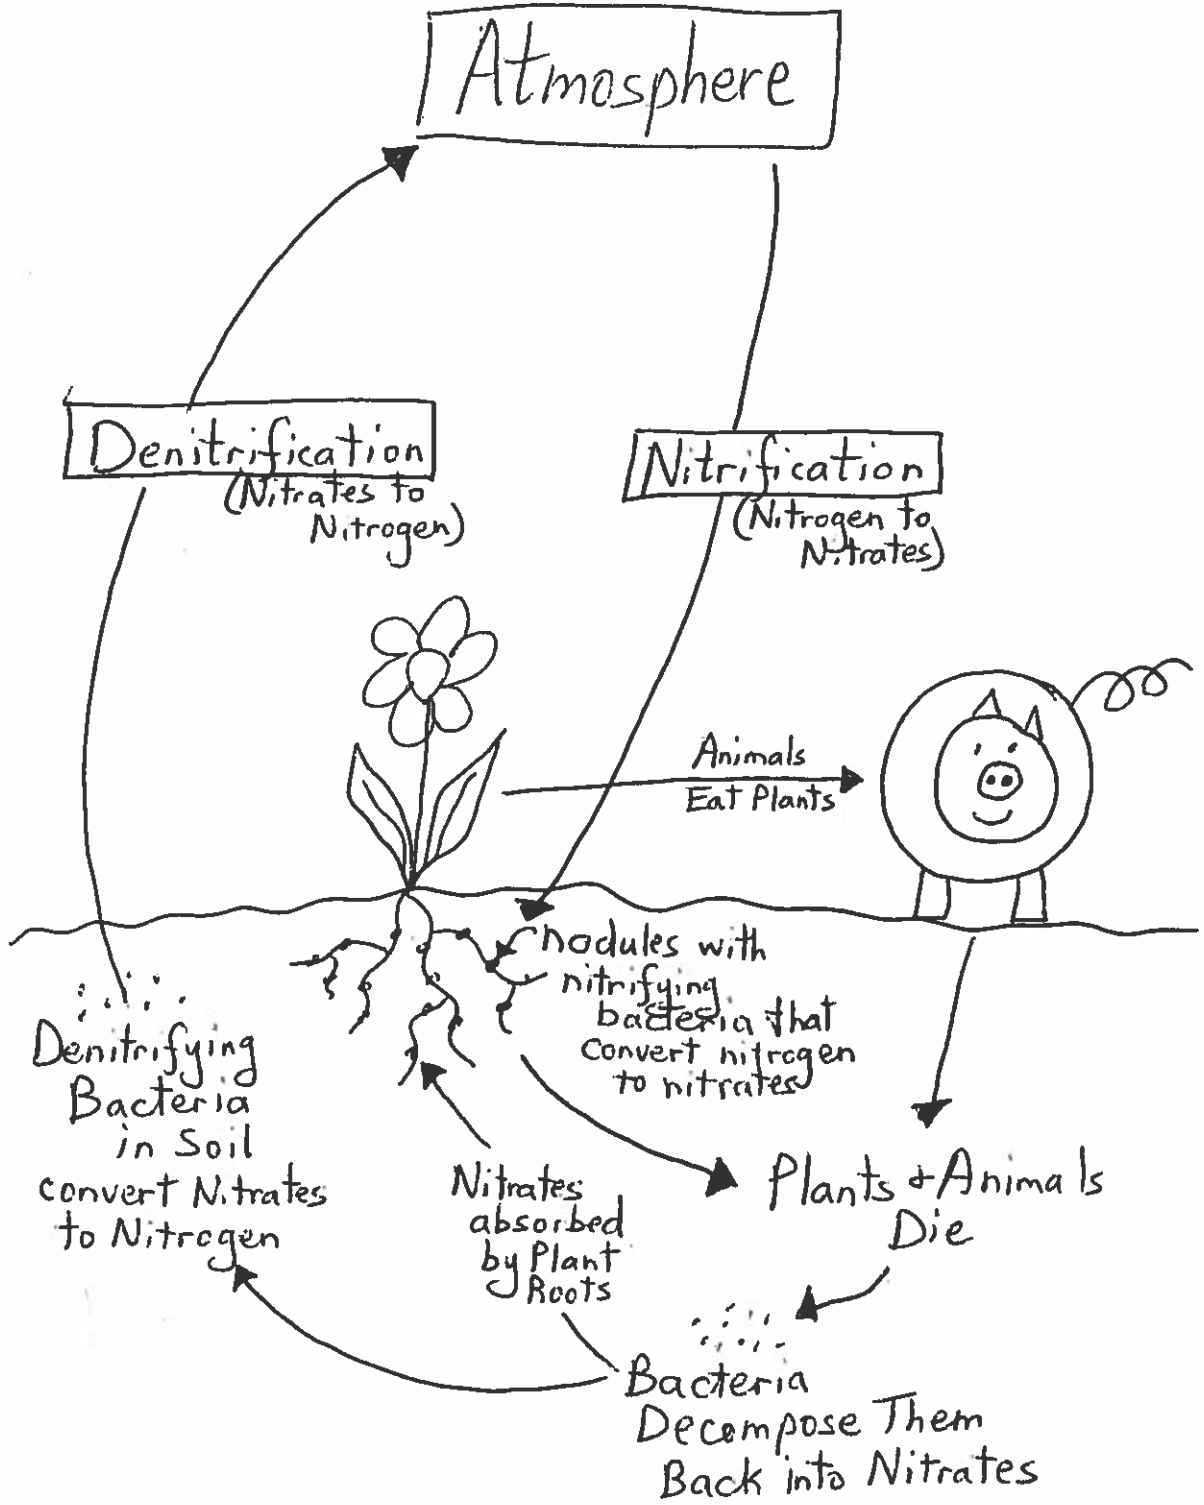 Atmosphere
Denitrification
(Nitrates to
Nitrogen)
Nitrification
(Nitrogen to
Nitrates)
Animals
Eat Plants
nodules with
nitrifying
bacteria that
convert nitrogen
to nitrates
Denitrifying
Bacteria
in Soil
convert Nitrates
to Nitrogen
Nitrates
absorbed
by Plant
Roots
Plants + Animals
Die
Bacteria
Decompose Them
Back into Nitrates